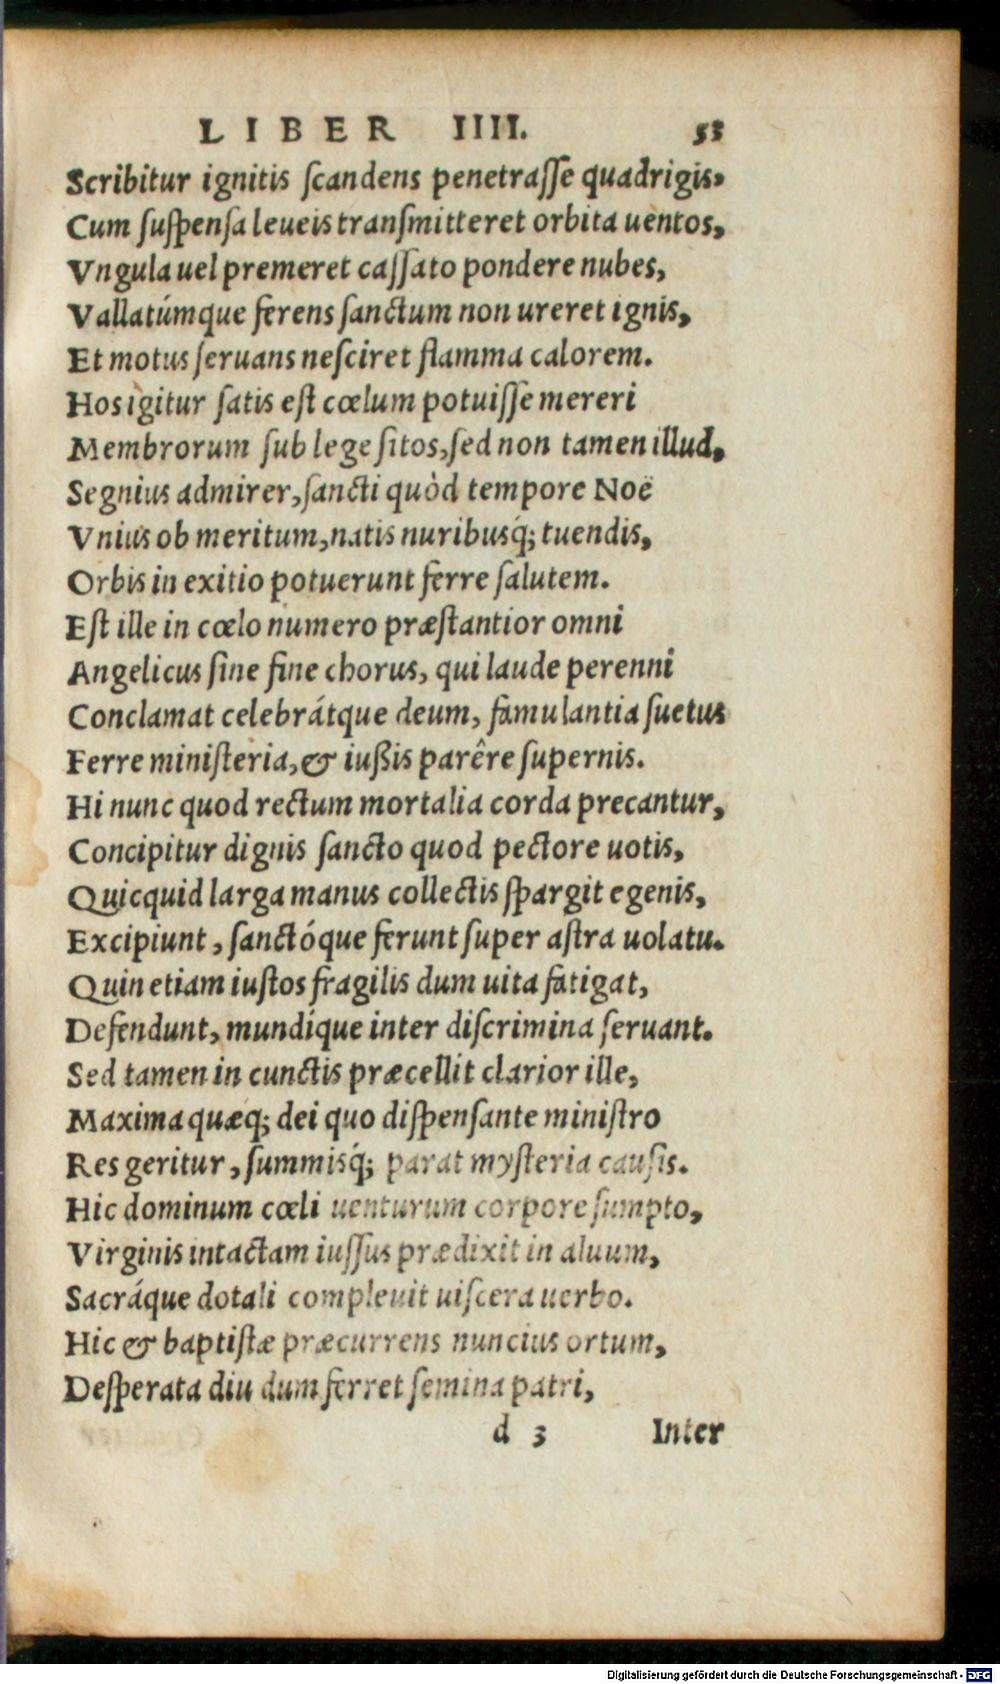 LIBER IIII. 53
Scribitur ignitis ſcandens penetraſſe quadrigis,
Cum ſuſpenſa leueis tranſmitteret orbita uentos,
Vngula uel premeret caſſato pondere nubes,
Vallatúmque ferens ſanctum non ureret ignis,
Et motus ſeruans neſciret flamma calorem.
Hos igitur ſatis eſt cœlum potuiſſe mereri
Membrorum ſub lege ſitos, ſed non tamen illud,
Segnius admirer, ſancti quòd tempore Noë
Vnius ob meritum, natis nuribusq́; tuendis,
Orbis in exitio potuerunt ferre ſalutem.
Eſt ille in cœlo numero præſtantior omni
Angelicus ſine fine chorus, qui laude perenni
Conclamat celebrátque deum, famulantia ſuetus
Ferre miniſteria, & iußis parêre ſupernis.
Hi nunc quod rectum mortalia corda precantur,
Concipitur dignis ſancto quod pectore uotis,
Quicquid larga manus collectis ſpargit egenis,
Excipiunt, ſanctóque ferunt ſuper aſtra uolatu.
Quin etiam iuſtos fragilis dum uita fatigat,
Defendunt, mundíque inter diſcrimina ſeruant.
Sed tamen in cunctis præcellit clarior ille,
Maxima quæq; dei quo diſpenſante miniſtro
Res geritur, ſummisq́; parat myſteria cauſis.
Hic dominum cœli uenturum corpore ſumpto,
Virginis intactam iuſſus prædixit in aluum,
Sacráque dotali compleuit uiſcera uerbo.
Hic & baptiſtæ præcurrens nuncius ortum,
Deſperata diu dum ferret ſemina patri,
d 3 Inter
Digitalisierung gefördert durch die Deutsche Forschungsgemeinschaft - DFG